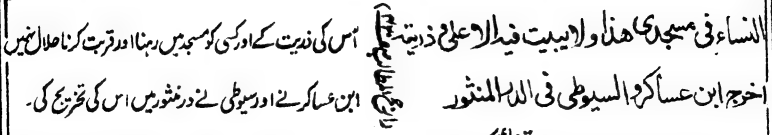 النساء فی مسجدی هذا ولا یبیت فیه الا علی و ذریته
اخرج ابن عساکر و السیوطی فی الدر المنثور
اُس کی ذریت کے اور کسی کو مسجد میں رہنا اور قربت کرنا حلال نہیں
ابن عساکر نے اور سیوطی نے در منثور میں اس کی تخریج کی۔